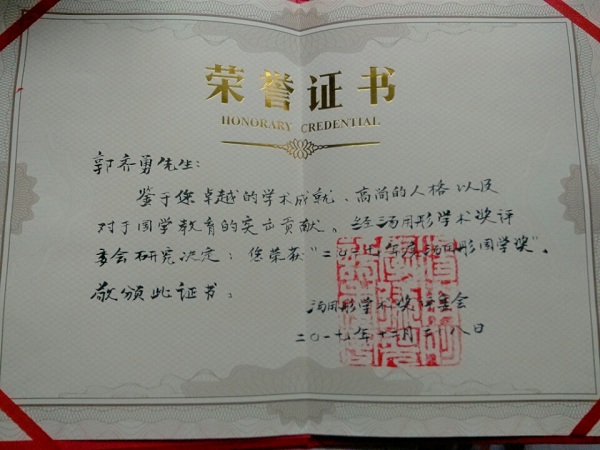 荣誉证书
HONORARY CREDENTIAL
郭齐勇先生：
鉴于您卓越的学术成就、高尚的人格以及
对于国学教育的突出贡献，经汤用彤学术奖评
委会研究决定：您荣获“二〇一七年度汤用彤国学奖”。
敬颁此证书。
汤用彤学术奖评委会
二〇一七年十二月二十八日